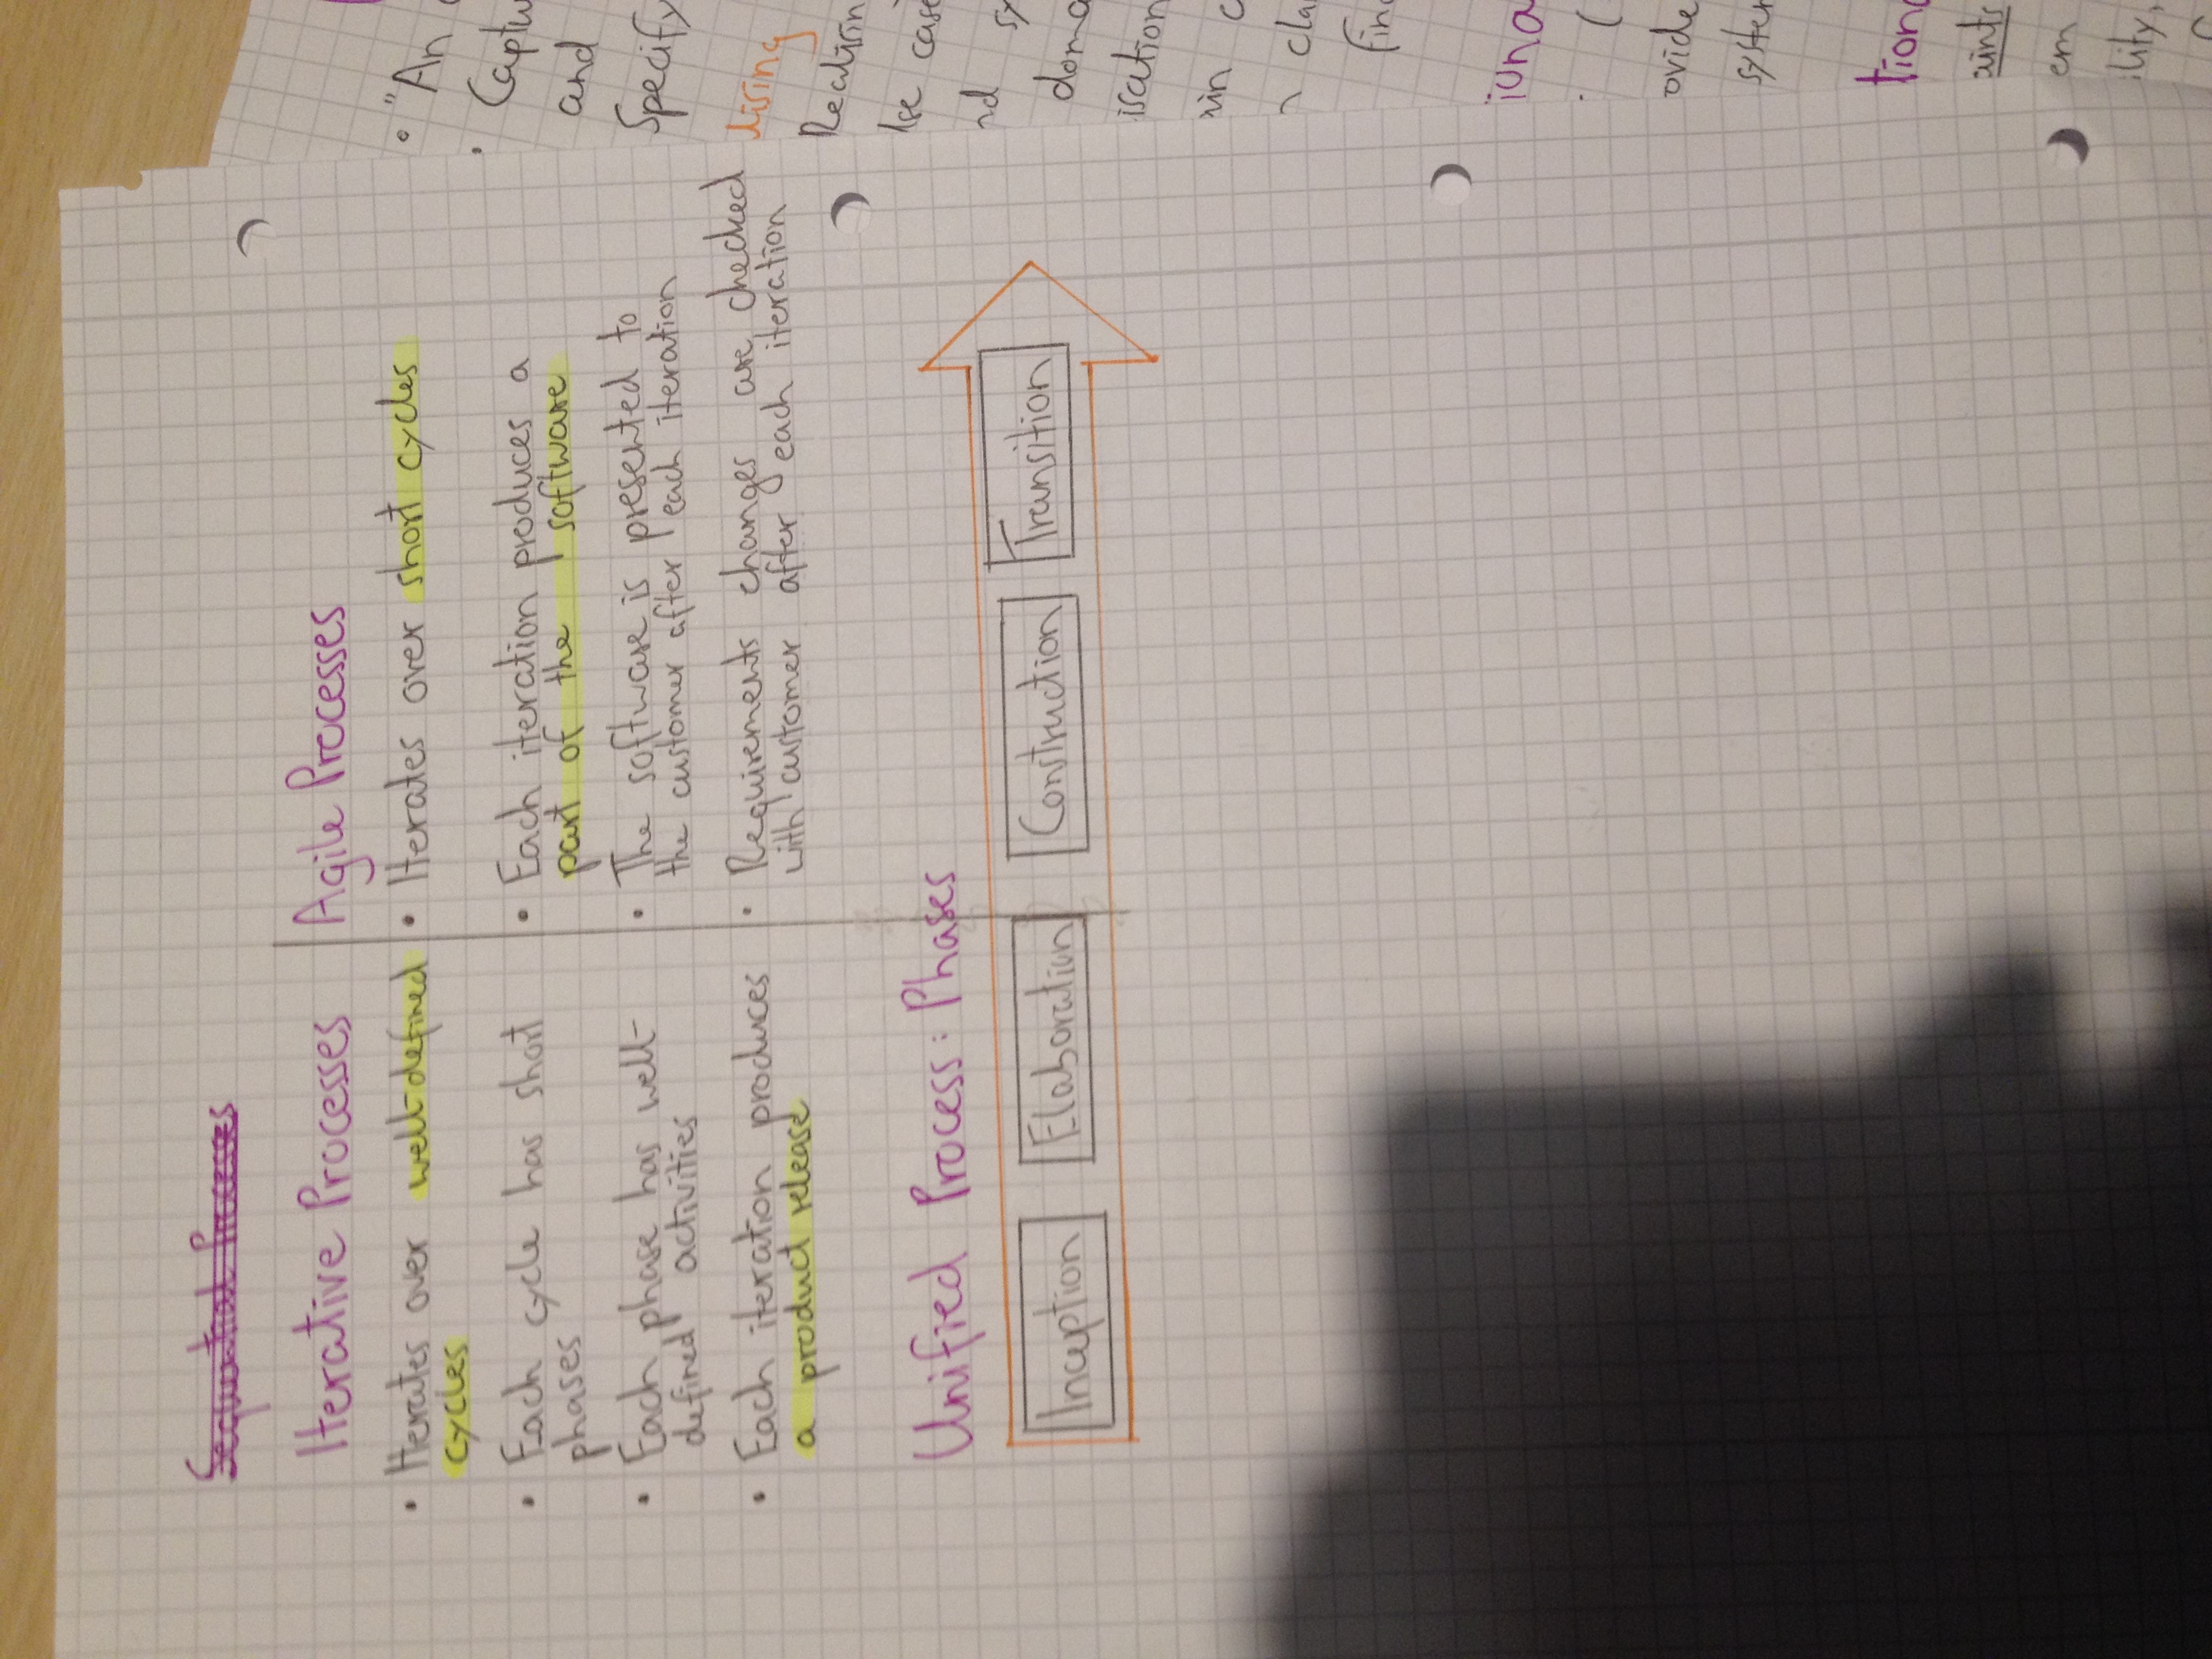 Sequential Processes
Iterative Processes
• Iterates over well-defined
cycles
• Each cycle has short
phases
• Each phase has well-
defined activities
• Each iteration produces
a product release
Agile Processes
• Iterates over short cycles
• Each iteration produces a
part of the software
• The software is presented to
the customer after each iteration
• Requirements changes are checked
with customer after each iteration
Unified Process: Phases
Inception
Elaboration
Construction
Transition
• "An
and
Specify